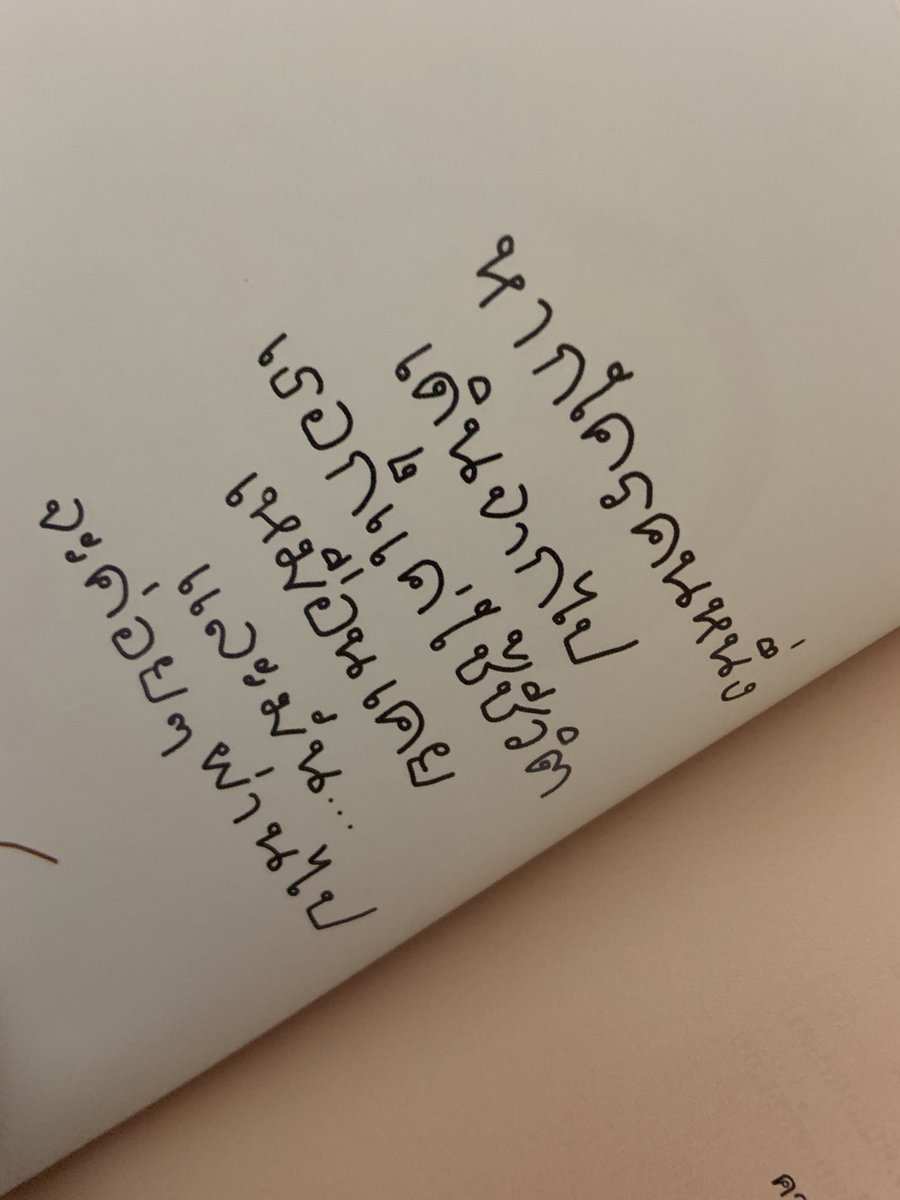 หากใครคนหนึ่ง
เดินจากไป
เธอก็แค่ใช้ชีวิต
เหมือนเคย
และมัน...
จะค่อยๆ ผ่านไป